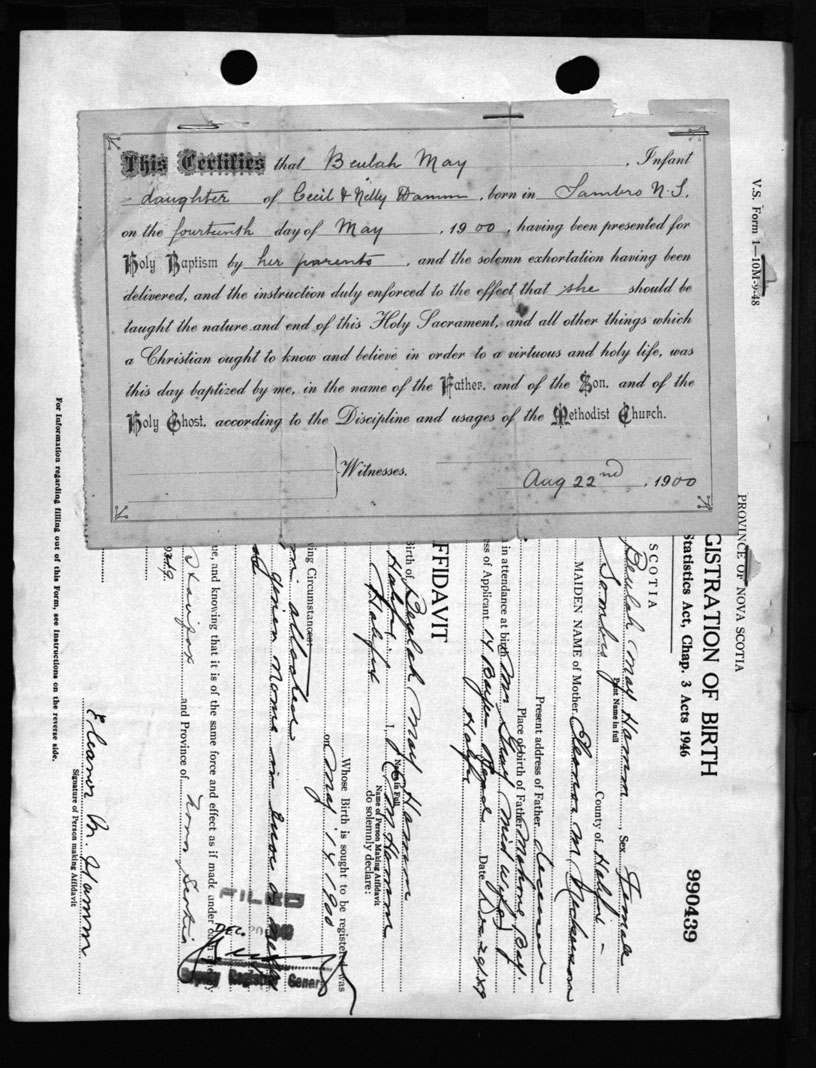 This Certifies that Beulah May, Infant
daughter of Cecil & Nelly Hamm, born in Sambro N.S.
on the fourteenth day of May, 1900, having been presented for
Holy Baptism by her parents, and the solemn exhortation having been
delivered, and the instruction duly enforced to the effect that she should be
taught the nature and end of this Holy Sacrament, and all other things which
a Christian ought to know and believe in order to a virtuous and holy life, was
this day baptized by me, in the name of the Father, and of the Son, and of the
Holy Ghost, according to the Discipline and usages of the Methodist Church.
Witnesses.
Aug 22nd, 1900
V.S. Form 1—10M-9-48
PROVINCE OF NOVA SCOTIA
GISTRATION OF BIRTH
Statistics Act, Chap. 3 Acts 1946
990439
SCOTIA
Beulah May Hamm, Sex Female
Print Name in full
County of
MAIDEN NAME of Mother Eleanor M.
Present address of Father deceased
Place of birth of Father Mahone Bay.
in attendance at birth Mrs Gray Mid wife
ss of Applicant Date Dec
FFIDAVIT
Birth of Beulah May Hamm
Name in Full
I, Hamm
Name of Person Making Affidavit
Halifax do solemnly declare:
Whose Birth is sought to be registered was
on May 14 1900
ving Circumstances:
given name in
ue, and knowing that it is of the same force and effect as if made under oath
Halifax and Province of Nova Scotia
FILED
DEC. 20
Deputy Registrar General
Eleanor M. Hamm
Signature of Person making Affidavit
For Information regarding filling out of this Form, see instructions on the reverse side.